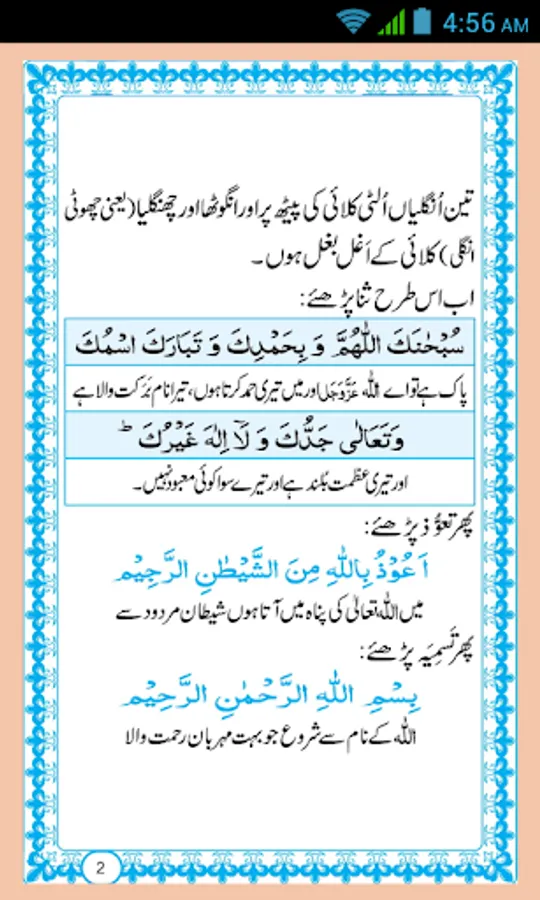 4:56 AM
تین اُنگلیاں اُلٹی کلائی کی پیٹھ پر اور انگوٹھا اور چھنگلیا (یعنی چھوٹی
انگلی) کلائی کے اَغل بَغل ہوں ۔
اب اس طرح ثنا پڑھئے :
سُبْحٰنَكَ اللّٰهُمَّ وَ بِحَمْدِكَ وَ تَبَارَكَ اسْمُكَ
پاک ہے تو اے اللہ عَزَّوَجَلَّ اور میں تیری حمد کرتا ہوں، تیرا نام بَرَکت والا ہے
وَتَعَالٰى جَدُّكَ وَ لَاۤ اِلٰهَ غَيْرُكَ ؕ
اور تیری عظمت بُلند ہے اور تیرے سوا کوئی معبود نہیں۔
پھر تعوُّذ پڑھئے :
اَعُوْذُ بِاللّٰهِ مِنَ الشَّيْطٰنِ الرَّجِيْمِ
میں اللہ تعالیٰ کی پناہ میں آتا ہوں شیطان مردود سے
پھر تَسمِیَہ پڑھئے :
بِسْمِ اللّٰهِ الرَّحْمٰنِ الرَّحِيْمِ
اللہ کے نام سے شروع جو بہت مہربان رحمت والا
2